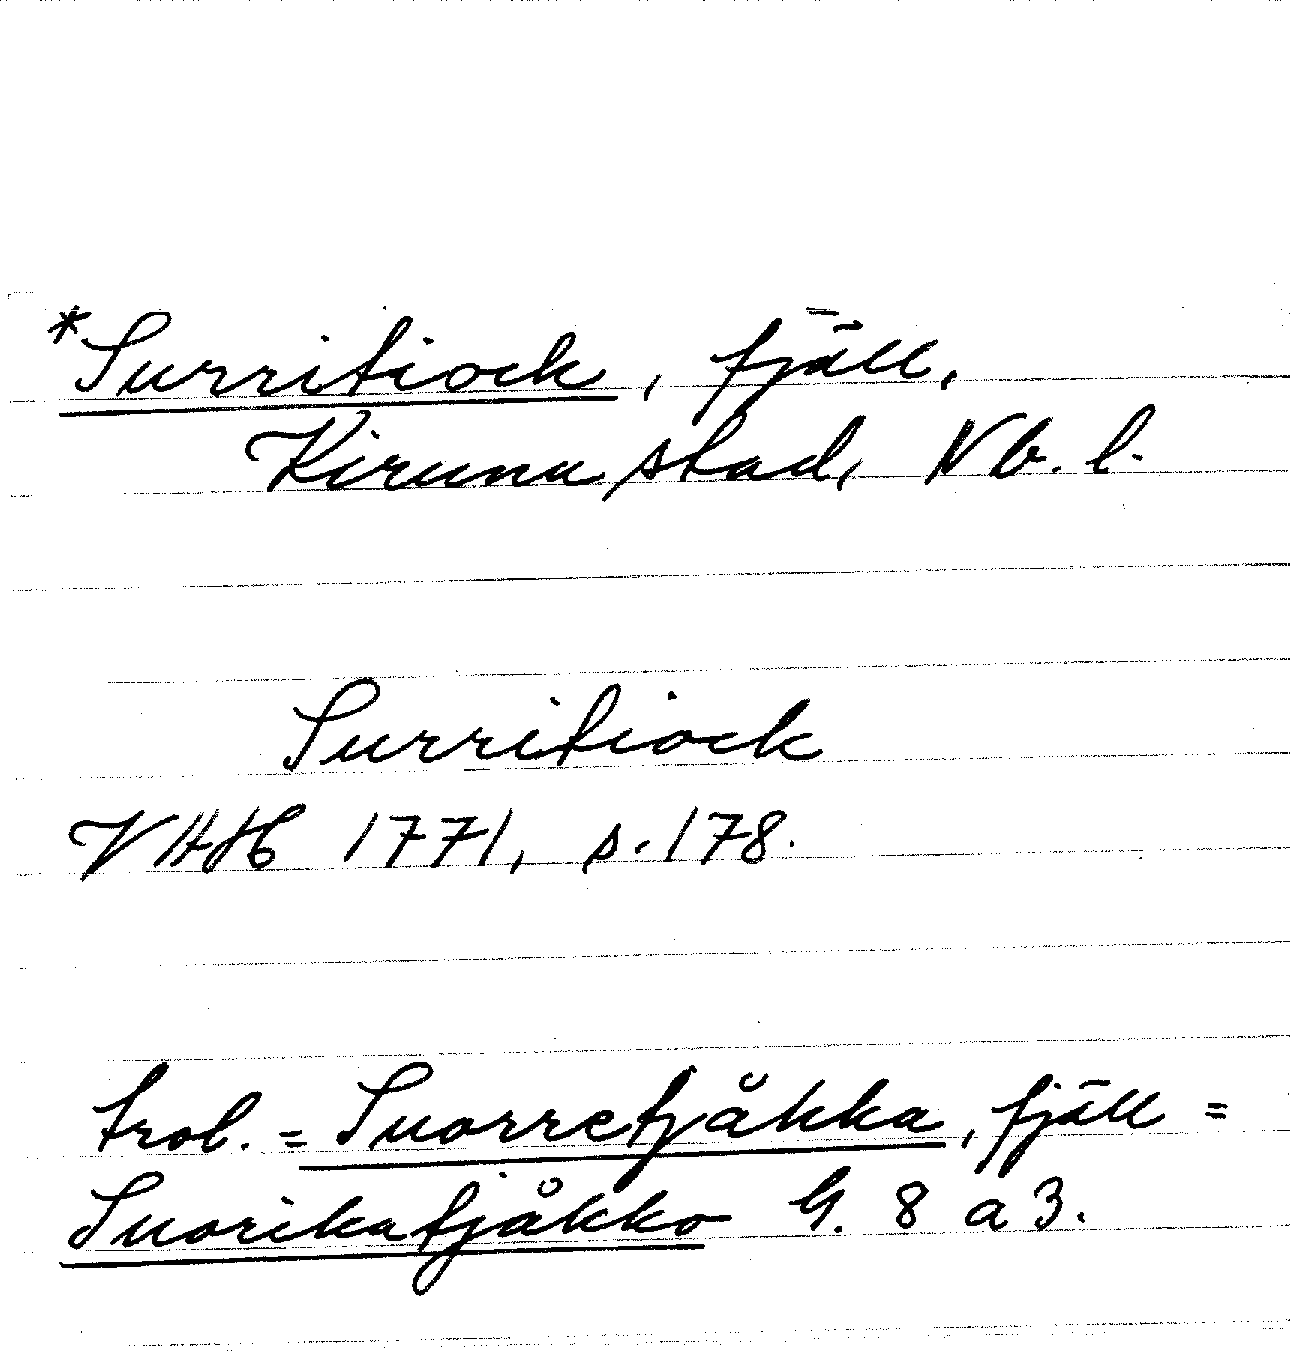 *Surritiock, fjäll,
Kiruna stad, Nb. l.
Surritiock
VHAH 1771, s. 178.
trol. = Suorretjåkka, fjäll =
Suorikatjåkko G. 8 a 3.